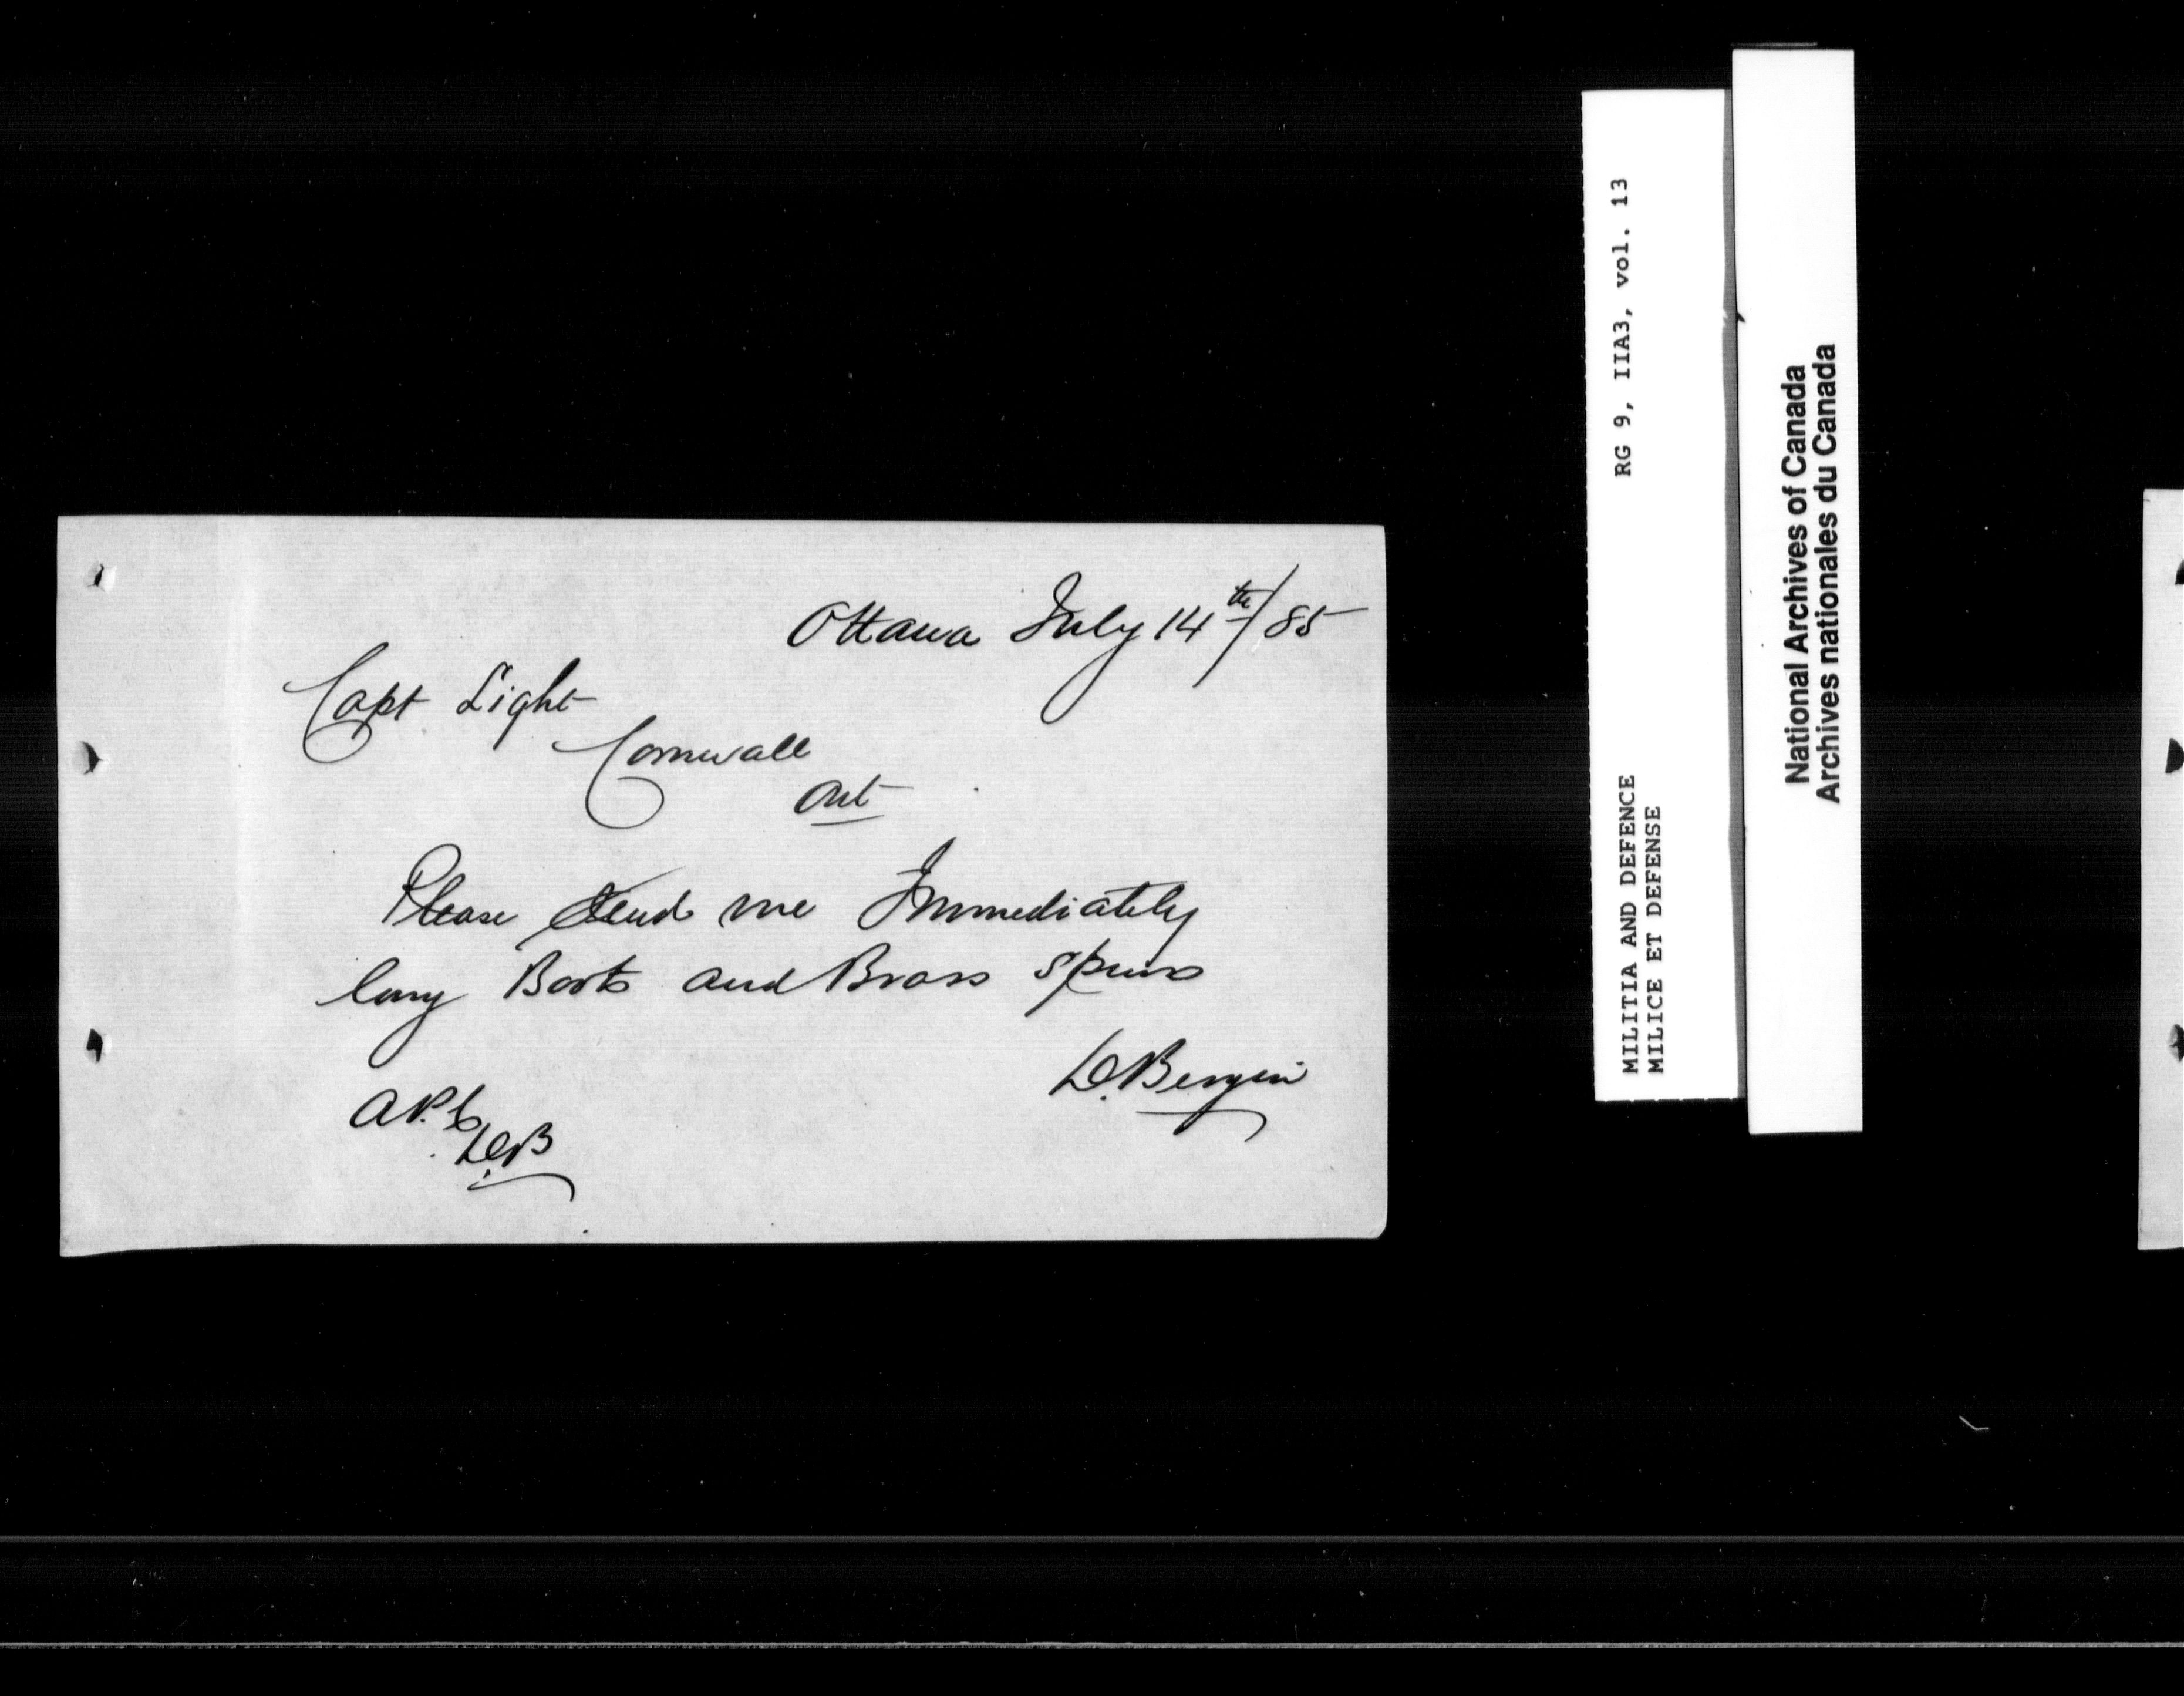 Ottawa July 14th/85
Capt Light
Cornwall
Ont
Please Send me Immediately
long Boots and Brass Spurs
D. Bergin
D.B
MILITIA AND DEFENCE RG 9, IIA3, vol. 13
MILICE ET DEFENSE
National Archives of Canada
Archives nationales du Canada